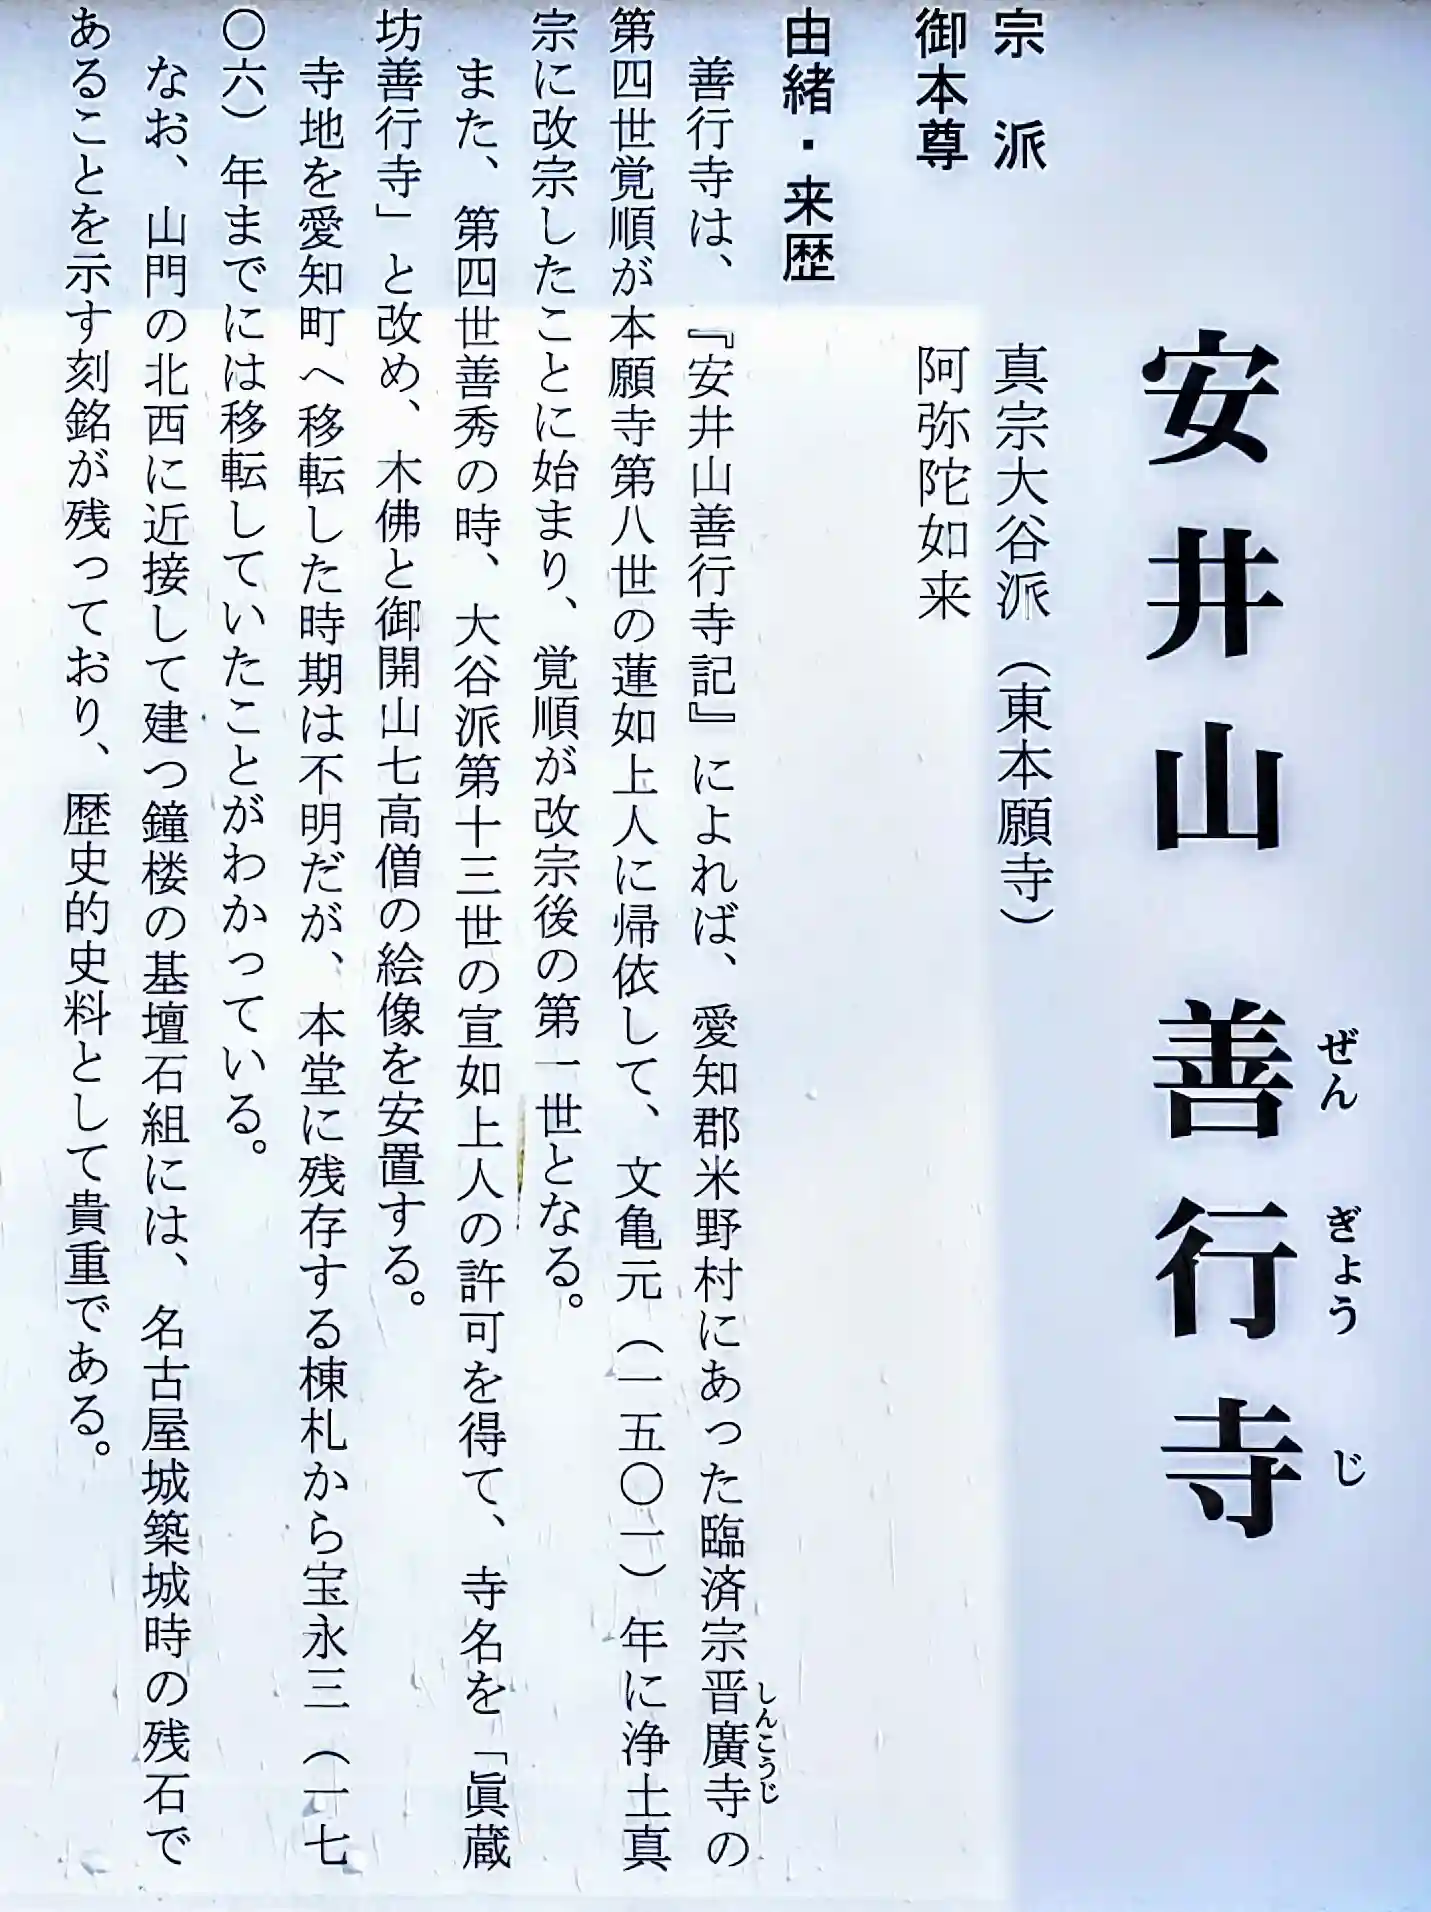 安井山 善行寺
ぜん ぎょう じ
宗 派 真宗大谷派（東本願寺）
御本尊 阿弥陀如来
由緒・来歴
善行寺は、『安井山善行寺記』によれば、愛知郡米野村にあった臨済宗晋廣寺の
しんこうじ
第四世覚順が本願寺第八世の蓮如上人に帰依して、文亀元（一五〇一）年に浄土真
宗に改宗したことに始まり、覚順が改宗後の第一世となる。
また、第四世善秀の時、大谷派第十三世の宣如上人の許可を得て、寺名を「眞蔵
坊善行寺」と改め、木佛と御開山七高僧の絵像を安置する。
寺地を愛知町へ移転した時期は不明だが、本堂に残存する棟札から宝永三（一七
〇六）年までには移転していたことがわかっている。
なお、山門の北西に近接して建つ鐘楼の基壇石組には、名古屋城築城時の残石で
あることを示す刻銘が残っており、歴史的史料として貴重である。